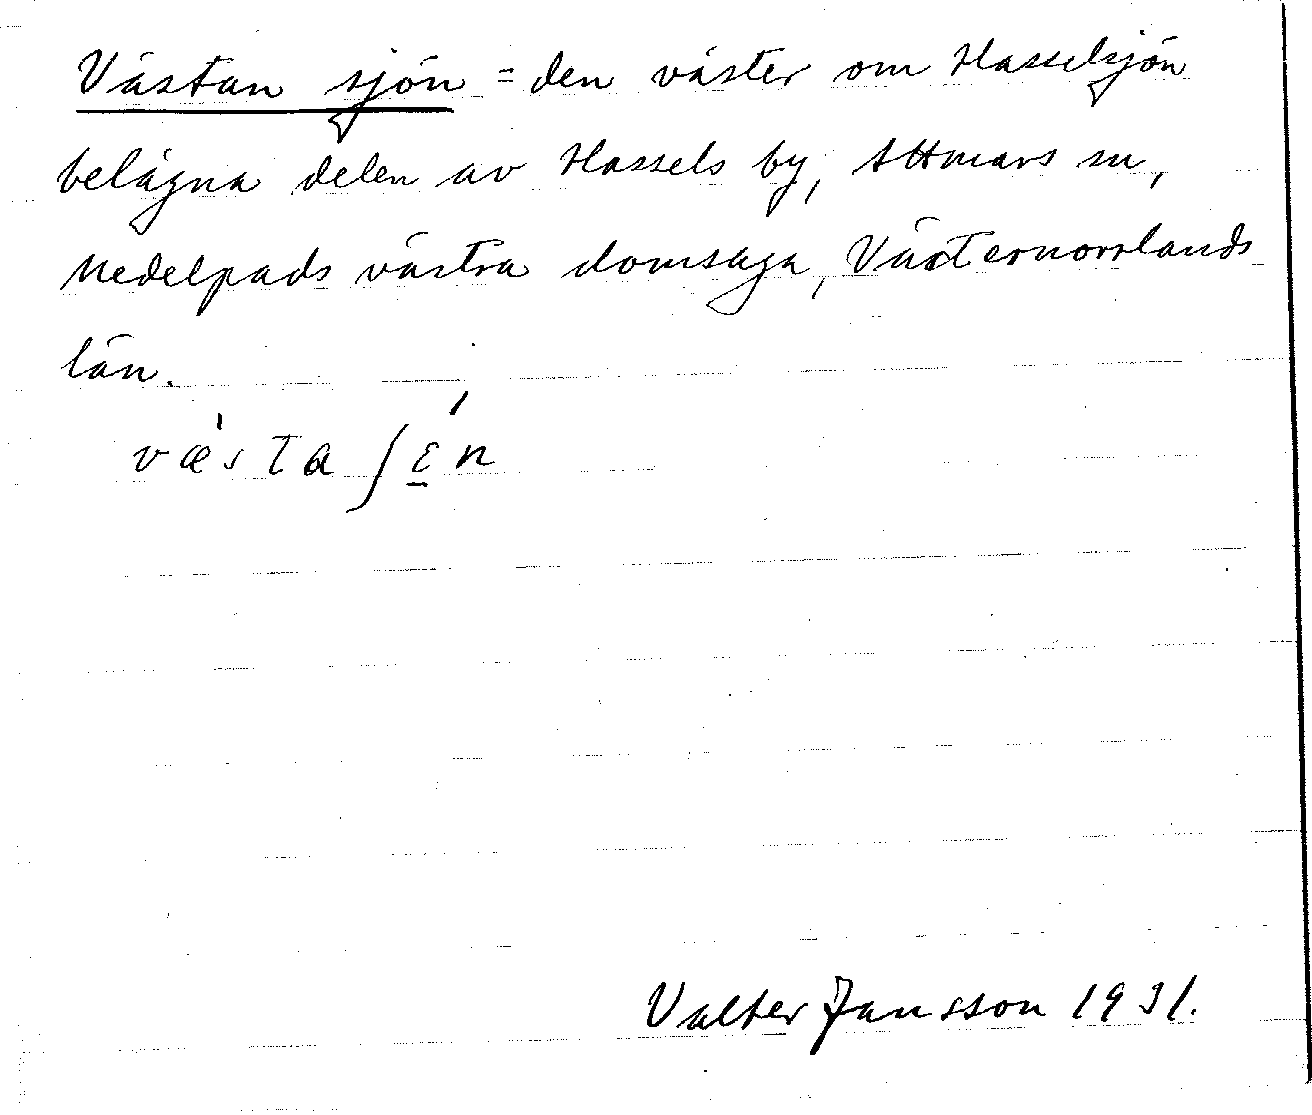 Västan sjön = den väster om Hasselsjön
belägna delen av Hassels by, Attmars sn,
Medelpads västra domsaga, Västernorrlands
län.
væ̍sta ʃɛ̠́n
Valter Jansson 1931.